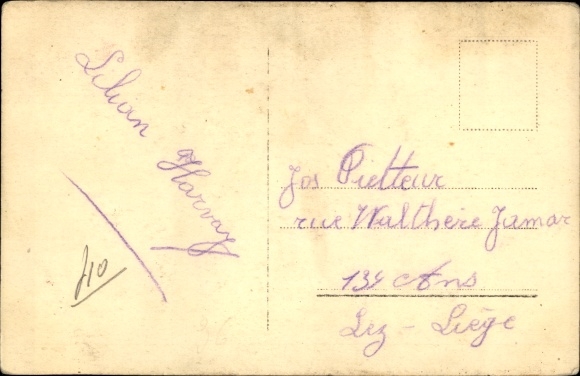 Lilian Harvay
Jos Pietteur
rue Walthère Jamar
134 Ans
Lez - Liège